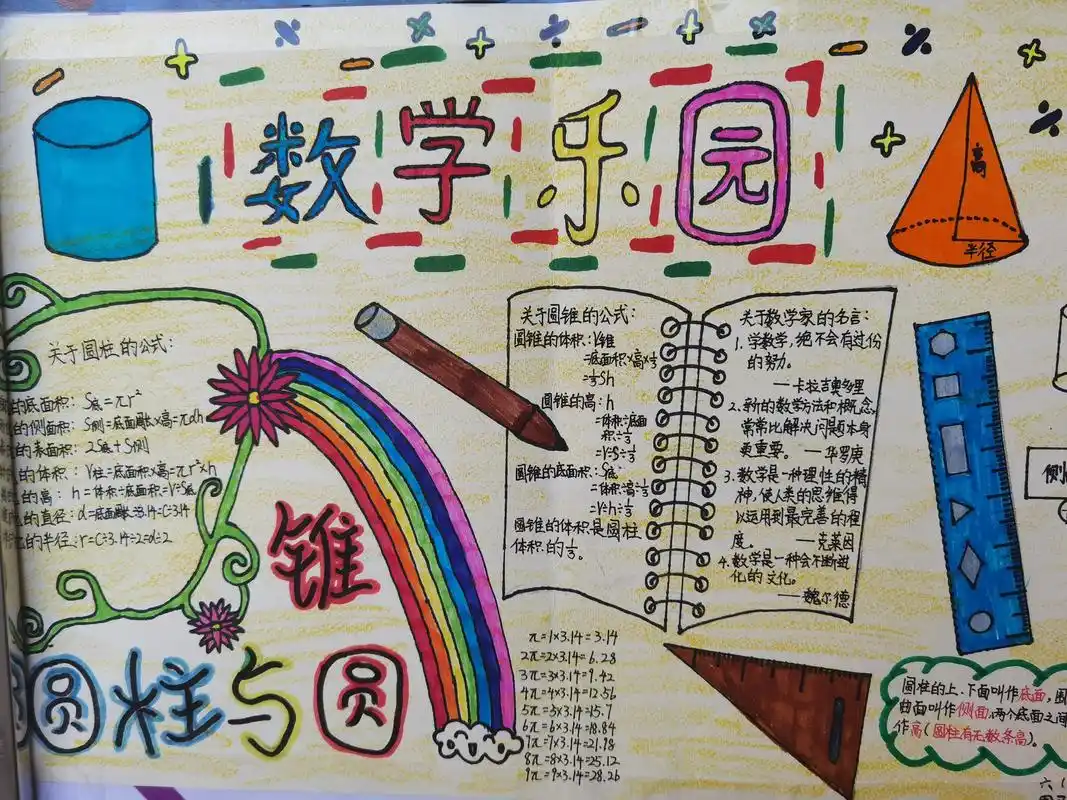 数学乐园
高
半径
关于圆柱的公式：
的底面积：S底=πr²
的侧面积：S侧=底面周长×高=πdh
的表面积：2S底+S侧
的体积：V柱=底面积×高=πr²×h
的高：h=体积÷底面积=V÷S底
的直径：d=底面周长÷3.14=C÷3.14
的半径：r=C÷3.14÷2=d÷2
关于圆锥的公式：
圆锥的体积：V锥
=底面积×高×⅓
=⅓Sh
圆锥的高：h
=体积÷底面
积÷⅓
=V÷S÷⅓
圆锥的底面积：S底
=体积÷高÷⅓
=V÷h÷⅓
圆锥的体积是圆柱
体积的⅓。
关于数学家的名言：
1、学数学，绝不会有过份
的努力。
——卡拉吉奥多里
2、新的数学方法和概念，
常常比解决问题本身
更重要。——华罗庚
3、数学是一种理性的精
神，使人类的思维得
以运用到最完善的程
度。——克莱因
4、数学是一种会不断进
化的文化。
——魏尔德
π=1×3.14=3.14
2π=2×3.14=6.28
3π=3×3.14=9.42
4π=4×3.14=12.56
5π=5×3.14=15.7
6π=6×3.14=18.84
7π=7×3.14=21.98
8π=8×3.14=25.12
9π=9×3.14=28.26
圆柱与圆
锥
侧
圆柱的上、下面叫作底面，围
曲面叫作侧面，两个底面之间
作高（圆柱有无数条高）。
六（